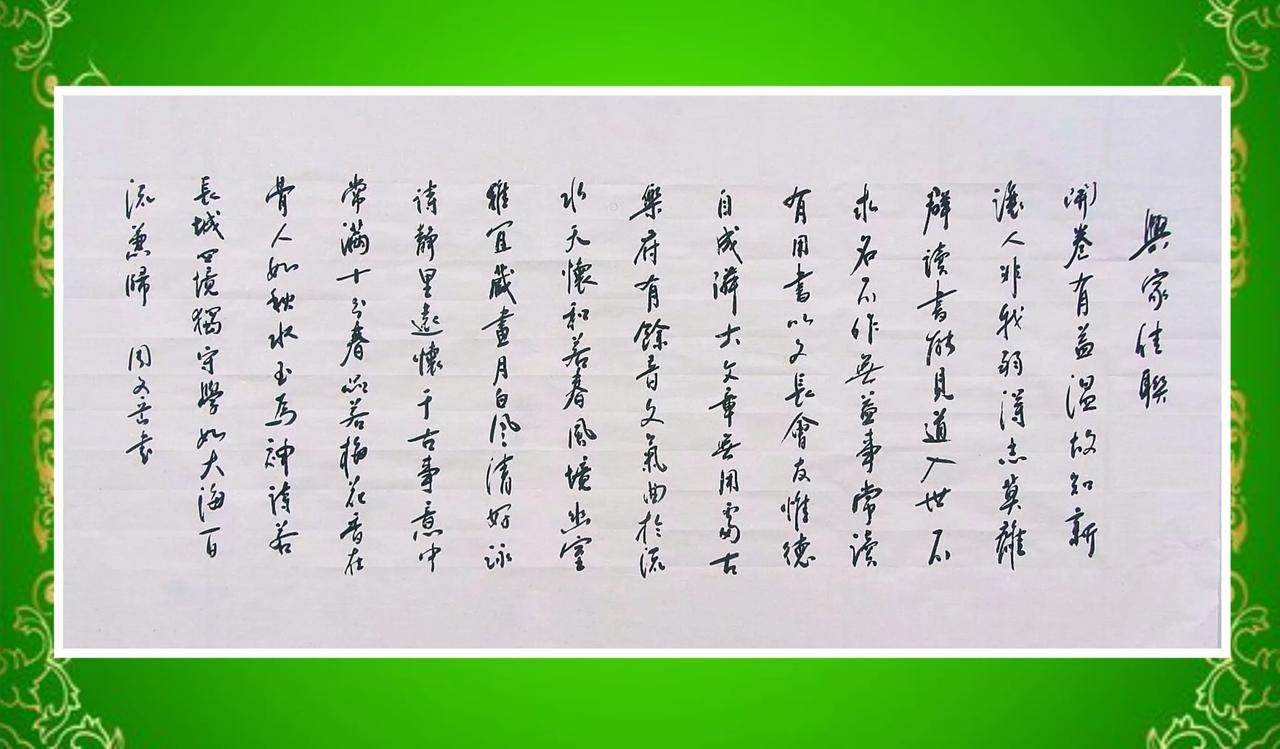 興家佳聯
開卷有益溫故知新
讓人非我弱得志莫離
群读書能見道入世不
求名不作無益事常读
有用書以文長會友惟德
自成鄰大文章無用需古
樂府有餘音文氣曲於流
水天懷和若春風境幽室
雅宜藏畫月白风清好詠
诗靜里遠懷千古事意中
常滿十分春品若梅花香在
骨人如秋水玉為神诗若
長城四境獨守學如大海百
流兼歸 周文